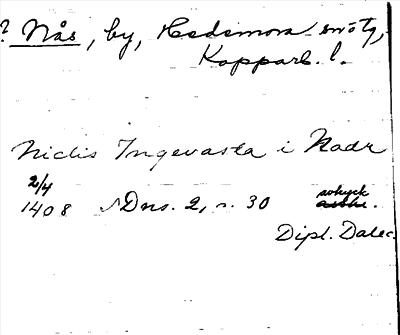 ? Nås, by, Hedemora
Kopparb. l.
Niclis Ingevasta i Nadr
2/4
1408 SDns. 2, s. 30 avtryck
Dipl. Dalec.